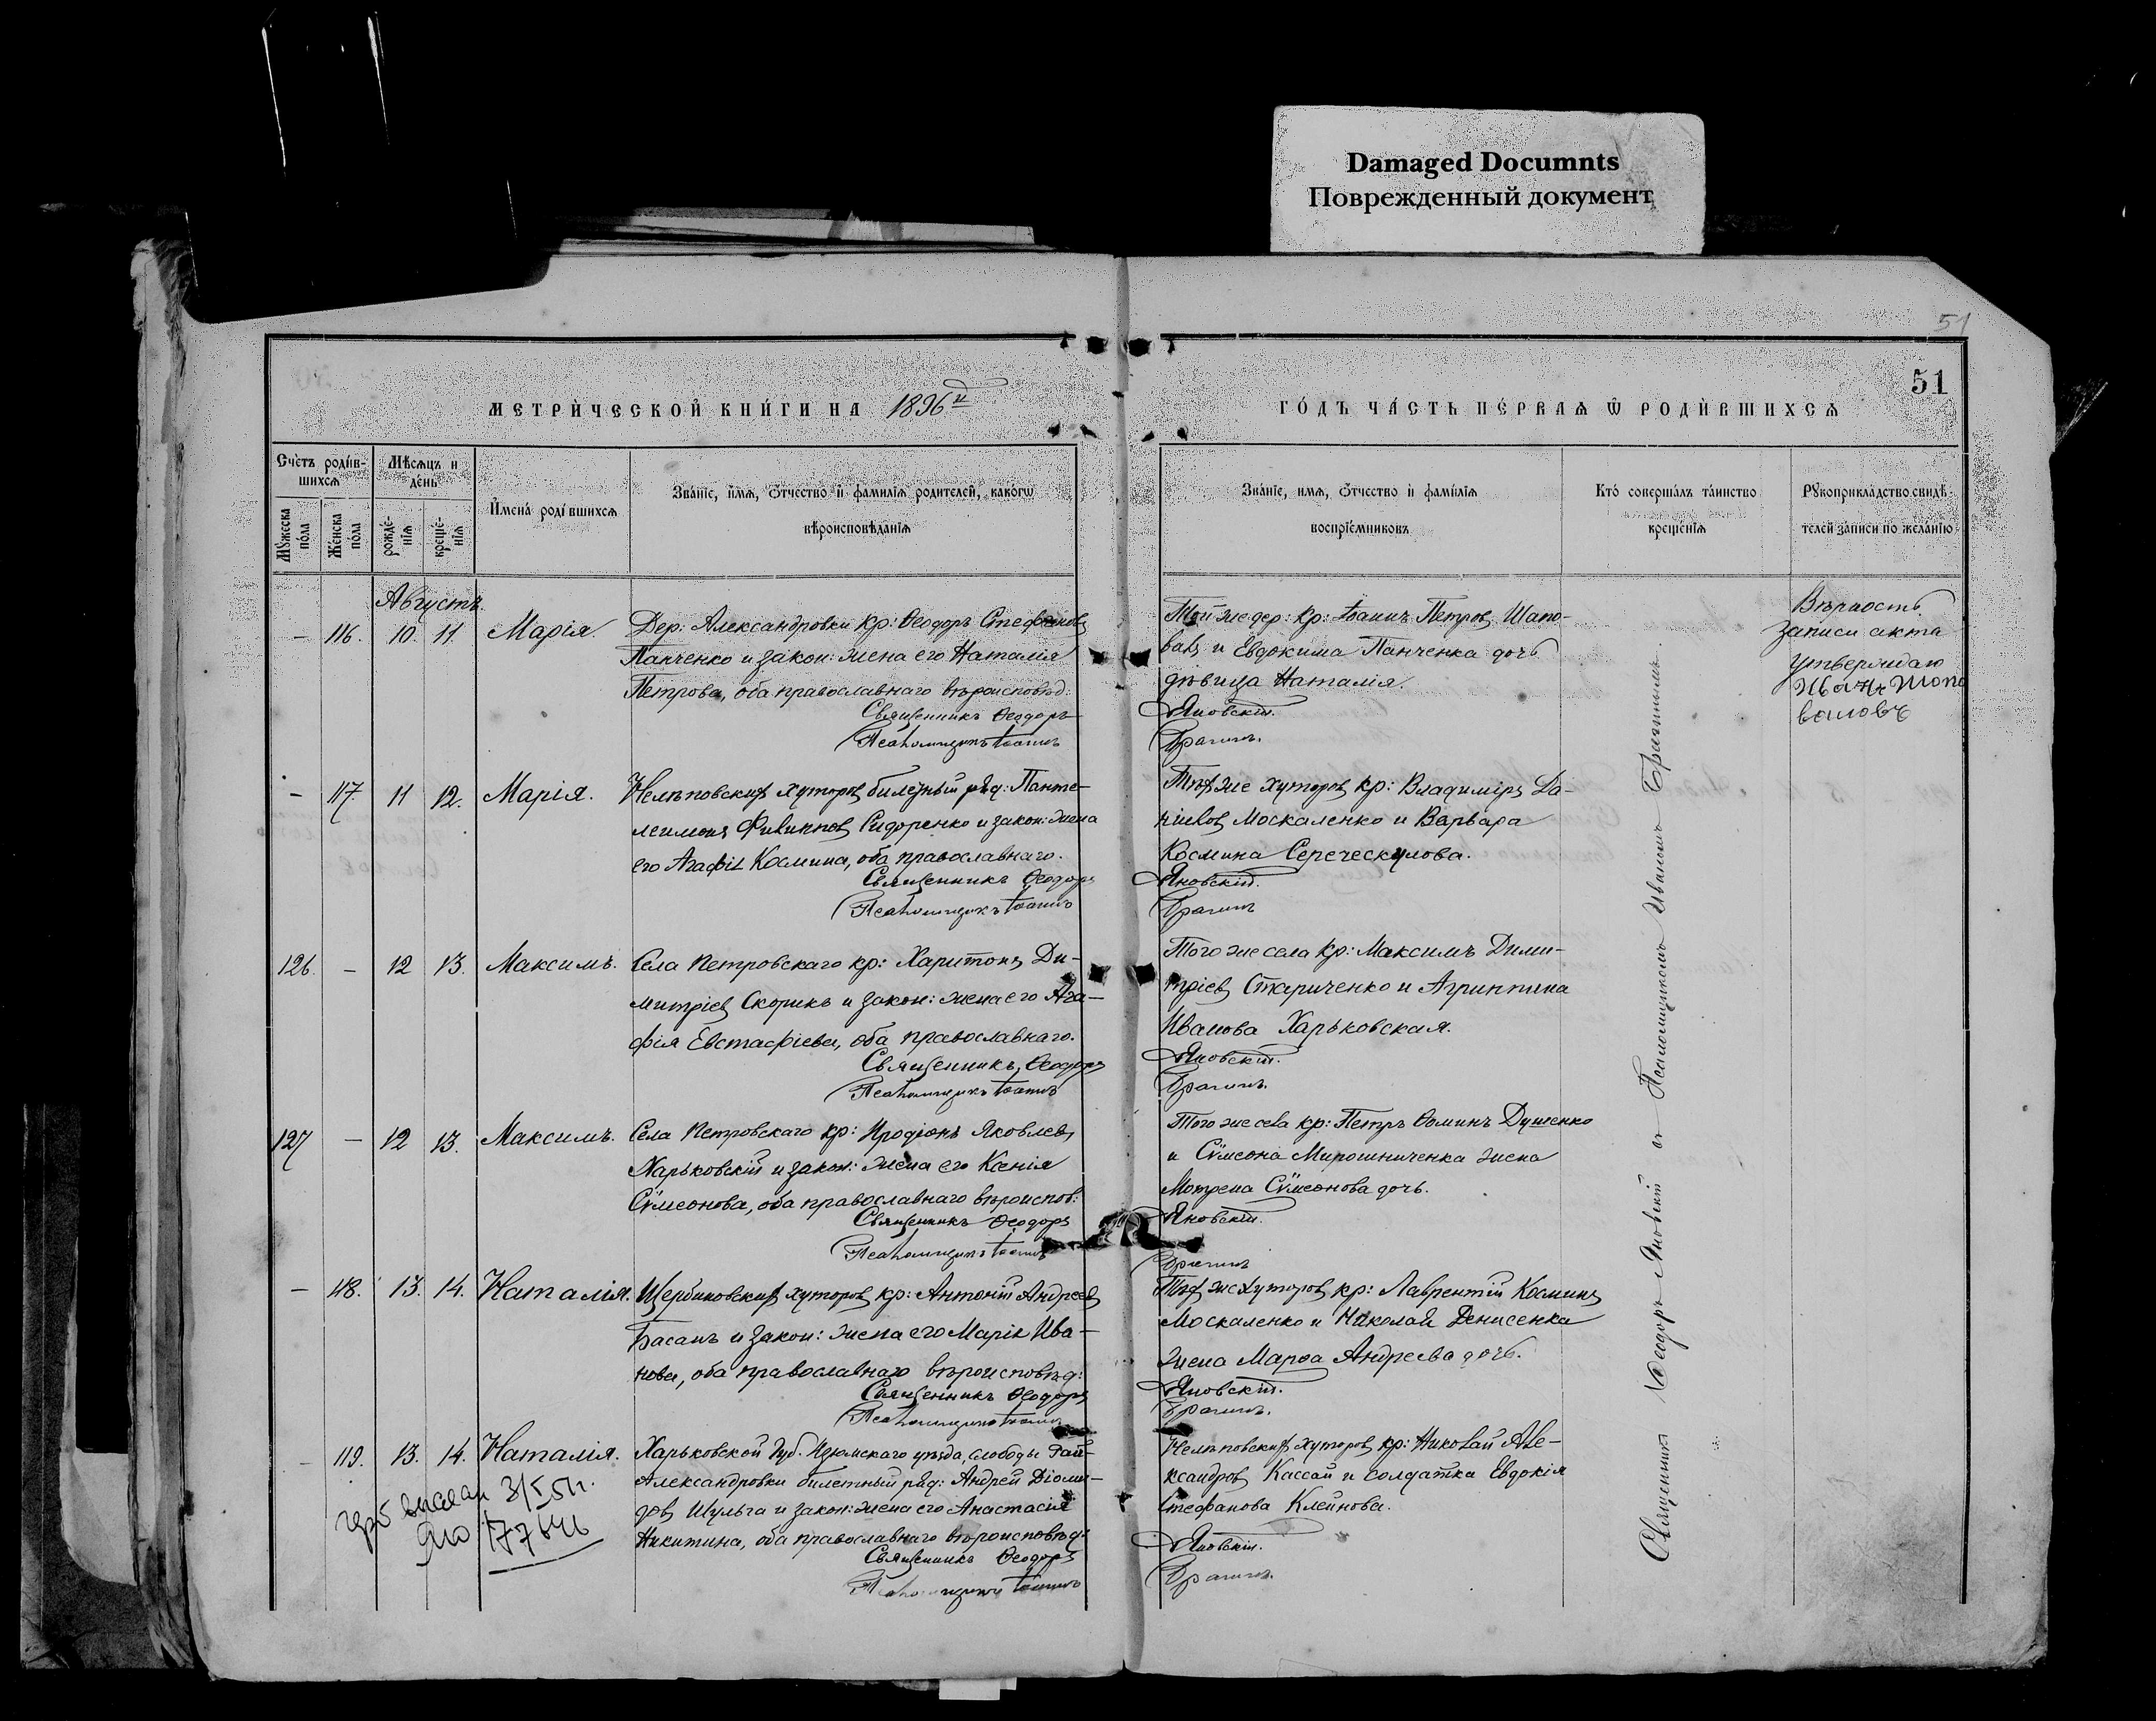 Damaged Documnts
Поврежденный документ
51
51
МЕТРИ́ЧЕСКОЙ КНИ́ГИ НА 1896й
ГО́ДЪ ЧА́СТЬ ПЕ́РВАѦ Ѿ РОДИ́ВШИХСѦ
Сче́тъ роди́в-
шихсѧ
Мꙋ́жеска по́ла
Же́нска по́ла
Мѣ́сѧцъ и
де́нь
рожде́-
нїѧ
креще́-
нїѧ
И҆мена̀ роди́вшихсѧ
Зва́нїе, и҆́мѧ, ѻ҆́тчество и҆ фамилїѧ родителей, како́гѡ
вѣроисповѣ́данїѧ
Зва́нїе, имѧ, ѻ҆́тчество и҆ фами́лїѧ
воспрїе́мниковъ
Кто́ соверша́лъ та́инство
креще́нїѧ
Рꙋкоприкла́дство свидѣ́-
телей за́писи по жела́нїю
Августъ.
– 116. 10. 11. Марія.
Дер: Александровки кр: Ѳеодоръ Стефановъ
Панченко и закон: жена его Наталія
Петрова, оба православнаго вѣроисповѣд:
Священникъ Ѳеодоръ
Псаломщикъ Іоаннъ
Той же дер: кр: Іоаннъ Петровъ Шапо-
валъ и Евдокима Панченка дочь
дѣвица Наталія.
Яновскій.
Брагинъ.
Вѣрность
записи акта
утверждаю
Иванъ Шопо
валовъ
– 117. 11 12. Марія.
Нелѣповскихъ хуторовъ билетный ряд: Панте-
леимонъ Филипповъ Сидоренко и закон: жена
его Агафія Космина, оба православнаго.
Священникъ Ѳеодоръ
Псаломщикъ Іоаннъ
Тѣхже хуторовъ кр: Владиміръ Да-
ніиловъ Москаленко и Варвара
Космина
Яновскій.
Брагинъ
126. – 12 13. Максимъ.
Села Петровскаго кр: Харитонъ Ди-
митріевъ Скорикъ и закон: жена его Ага-
фія Евстафіева, оба православнаго.
Священникъ Ѳеодоръ
Псаломщикъ Іоаннъ
Того же села кр: Максимъ Дими-
тріевъ Стариченко и Агриппина
Иванова Харьковская.
Яновскій.
Брагинъ.
127 – 12 13. Максимъ.
Села Петровскаго кр: Иродіонъ Яковлевъ
Харьковскій и закон: жена его Ксенія
Сѷмеонова, оба православнаго вѣроиспов:
Священникъ Ѳеодоръ
Псаломщикъ Іоаннъ
Того же села кр: Петръ Ѳоминъ Душенко
и Сѷмеона Мирошниченка жена
Мотрена Сѷмеонова дочь.
Яновскій.
Брагинъ
– 118. 13. 14. Наталія.
Щербиновскихъ хуторовъ кр: Антоній Андреевъ
Басанъ и закон: жена его Марія Ива-
нова, оба православнаго вѣроисповѣд:
Священникъ Ѳеодоръ
Псаломщикъ Іоаннъ
Тѣхъ же хуторовъ кр: Лаврентій Косминъ
Москаленко и Николая Денисенка
жена Марѳа Андреева дочь.
Яновскій.
Брагинъ.
– 119. 13. 14. Наталія.
Харьковской губ. Изюмскаго уѣзда, слободы Рай-
Александровки билетный ряд: Андрей Діоми-
довъ Шульга и закон: жена его Анастасія
Никитина, оба православнаго вѣроисповѣд:
Священникъ Ѳеодоръ
Псаломщикъ Іоаннъ
Нелѣповскихъ хуторовъ кр: Николай Але-
ксандровъ Кассай и солдатка Евдокія
Стефанова Клейнова.
Яновскій.
Брагинъ.
Священникъ Ѳеодоръ Яновскій съ Псаломщикомъ Иваномъ Брагинымъ.